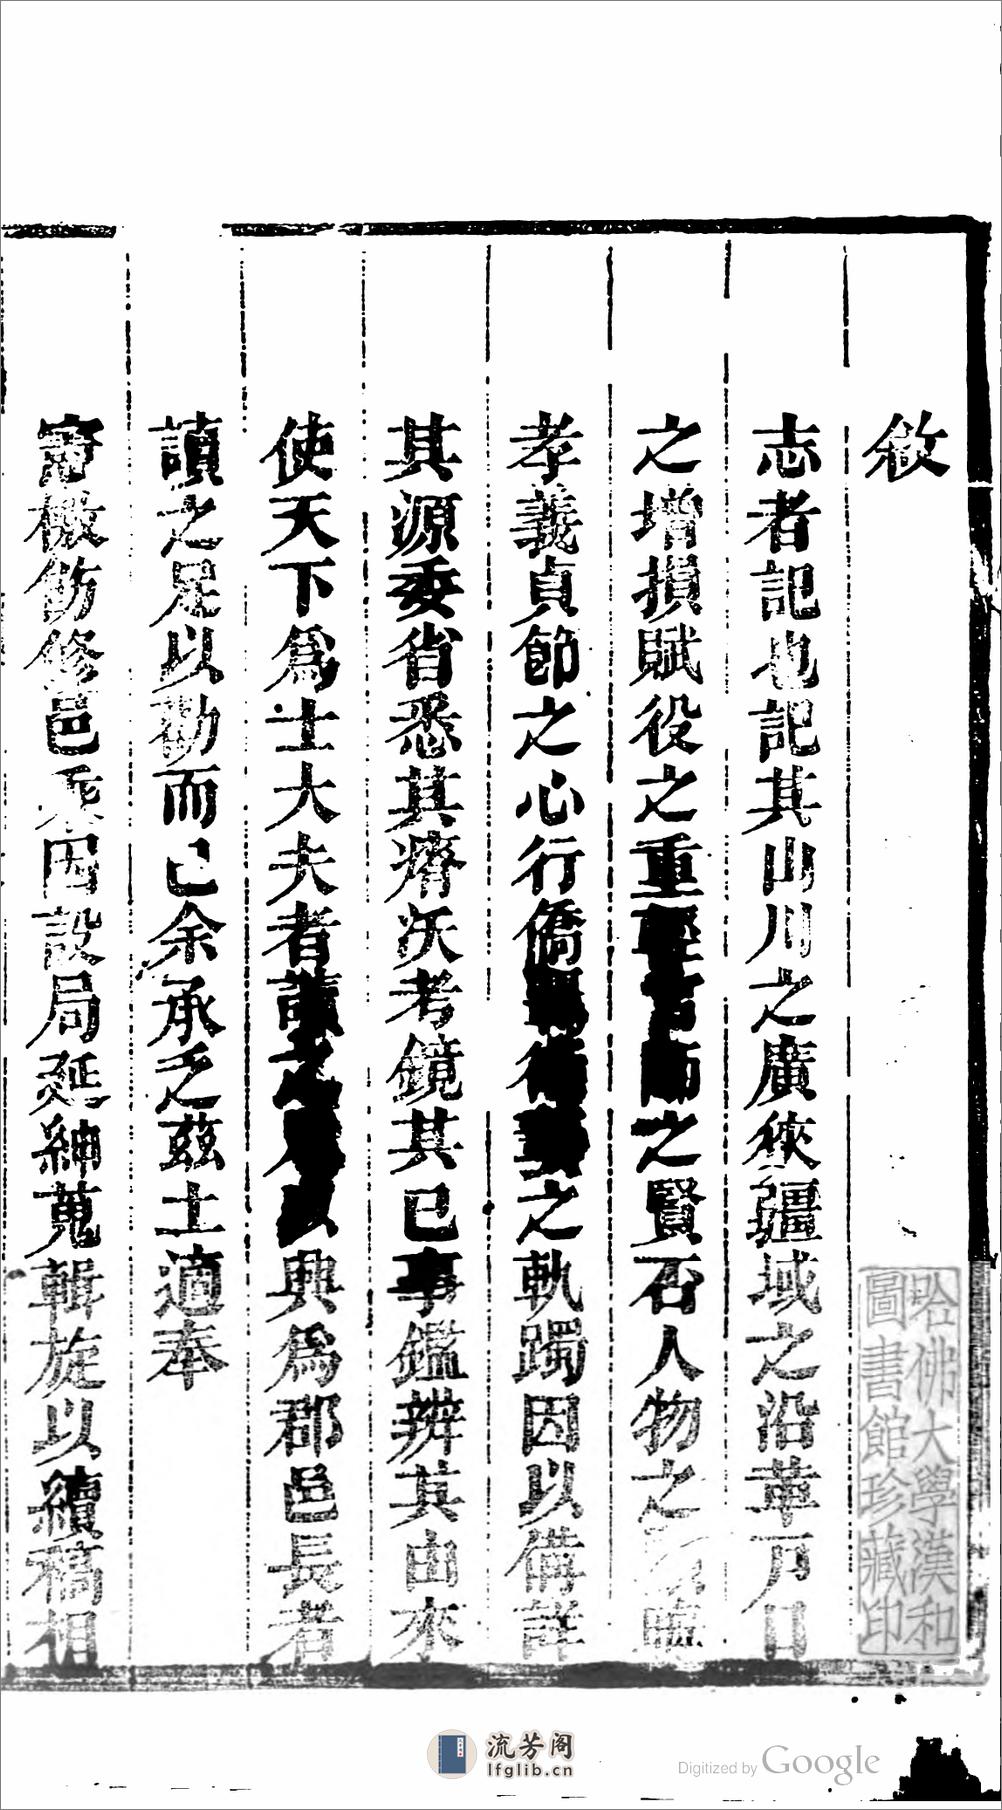 敘
志者記也記其山川之廣狹疆域之沿革戸口
之增損賦役之重輕官師之賢否人物之顯晦
孝義貞節之心行僑之軌躅因以備詳
其源委省悉其瘠沃考鏡其已事鑑辨其由來
使天下爲士大夫者讀之足以興爲郡邑長者
讀之足以勸而已余承乏茲土適奉
憲檄飭修邑乘因設局延紳蒐輯旋以續稿相
哈佛大學漢和
圖書館珍藏印
流芳阁
lfglib.cn
Digitized by Google